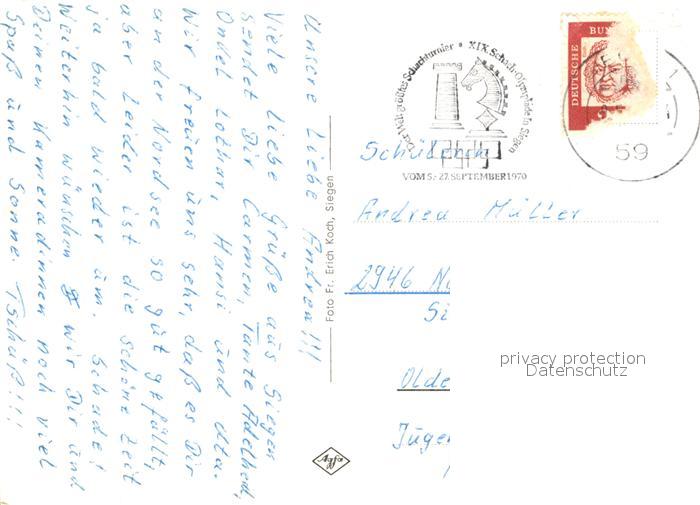 Unsere liebe Andrea!!!
Viele liebe Grüße aus Siegen
sendet Dir Carmen, Tante Adelheid,
Onkel Lothar, Hansi und Uta.
Wir freuen uns sehr, daß es Dir
an der Nordsee so gut gefällt,
aber leider ist die schöne Zeit
ja bald wieder um. Schade!
Weiterhin wünschen wir Dir und
Deinen Kameradinnen noch viel
Spaß und Sonne. Tschüß!!!
Foto Fr. Erich Koch, Siegen
Agfa
Der Welt größtes Schachturnier • XIX Schach-Olympiade in Siegen
VOM 5.-27. SEPTEMBER 1970
DEUTSCHE BUN
59
Schülerin
Andrea Müller
2946
Si
Olde
Juge
privacy protection
Datenschutz